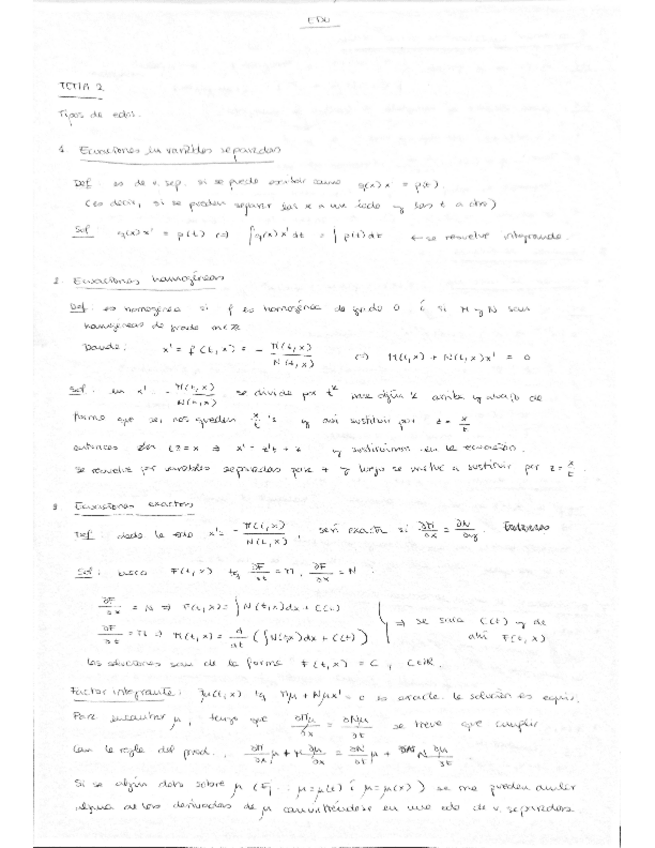 EDO
TEMA 2
Tipos de edos.
1. Ecuaciones en variables separadas
Def: es de v. sep. si se puede escribir como g(x)x' = p(t).
(es decir, si se pueden separar las x a un lado y las t a otro)
Sol: g(x)x' = p(t) ⇔ ∫g(x)x'dt = ∫p(t)dt ← se resuelve integrando.
2. Ecuaciones homogéneas
Def: es homogénea si f es homogénea de grado 0 ó si M y N son
homogéneas de grado
Donde: x' = f(t,x) = - M(t,x)/N(t,x) ⇔ M(t,x) + N(t,x)x' = 0
Sol: en x' - M(t,x)/N(t,x) se divide por arriba y abajo de
forma que se nos queden x/t 's y así sustituir por z = x/t
entonces tz = x ⇒ x' = z't + z y sustituimos en la ecuación.
se resuelve por variables separadas para z y luego se vuelve a sustituir por z = x/t
3 Ecuaciones exactas
Def: dada la edo x' = - M(t,x)/N(t,x), será exacta si ∂M/∂x =
Sol: busco F(t,x) tq ∂F/∂t = M, ∂F/∂x = N
∂F/∂x = N ⇒ F(t,x) = ∫N(t,x)dx + C(t)
∂F/∂t = M ⇒ M(t,x) = d/dt (∫N(t,x)dx + C(t)) ⇒ se saca C(t) y de
ahí F(t,x)
Las soluciones son de la forma F(t,x) = C, C∈ℝ.
Factor integrante: μ(t,x) tq Mμ + Nμx' = 0 es exacta. la solución es equiv.
Para encontrar μ, tengo que ∂Mμ/∂x = ∂Nμ/∂t se tiene que cumplir
Con la regla del prod., ∂M/∂x μ + M ∂μ/∂x = ∂N/∂t μ + N ∂μ/∂t
Si sé algún dato sobre μ (Ej: μ=μ(t) ó μ=μ(x)) se me pueden anular
alguna de las derivadas de μ convirtiéndose en una edo de v. separadas.